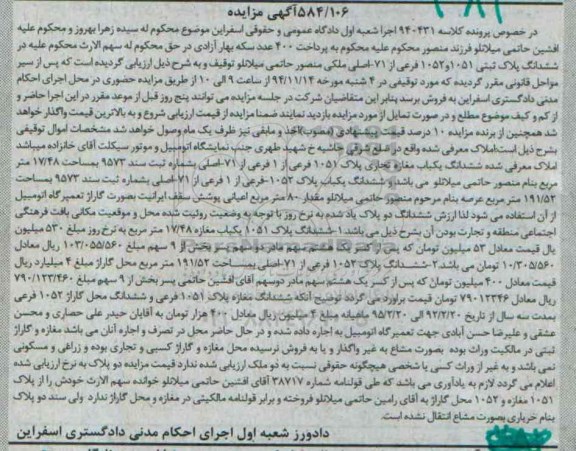 ۵۸۴/۱۰۶آگهی مزایده
در خصوص پرونده کلاسه ۴۳۱-۹۴ اجرا شعبه اول دادگاه عمومی و حقوقی اسفراین موضوع محکوم له سیده زهرا بهروز و محکوم علیه
افشین حاتمی میلانلو فرزند منصور محکوم علیه محکوم به پرداخت ۴۰۰ عدد سکه بهار آزادی در حق محکوم له سهم الارث محکوم علیه در
ششدانگ پلاک ثبتی ۱۰۵۱و۱۰۵۲ فرعی از ۷۱-اصلی ملکی منصور حاتمی میلانلو توقیف و به شرح ذیل ارزیابی گردیده است که پس از سیر
مراحل قانونی مقرر گردیده که مورد توقیفی در ۴ شنبه مورخه ۹۴/۱۱/۱۴ از ساعت ۹ الی ۱۰ از طریق مزایده حضوری در محل اجرای احکام
مدنی دادگستری اسفراین به فروش برسد بنابر این متقاضیان شرکت در جلسه مزایده می توانند پنج روز قبل از موعد مقرر در این اجرا حاضر و
از کم و کیف موضوع مطلع و در صورت تمایل از مورد مزایده بازدید نمایند ضمنا مزایده از قیمت ارزیابی شروع و به بالاترین قیمت واگذار خواهد
شد همچنین از برنده مزایده ۱۰ درصد قیمت پیشنهادی (مصوب) اخذ و مابقی نیز ظرف یک ماه وصول خواهد شد مشخصات اموال توقیفی
بشرح ذیل است املاک معرفی شده واقع در ضلع شرقی حاشیه خ شهید طهری جنب نمایشگاه اتومبیل و موتور سیکلت آقای خانزاده میباشد
املاک معرفی شده ششدانگ یکباب مغازه تجاری پلاک ۱۰۵۱ فرعی از ۱ فرعی از ۷۱-اصلی بشماره ثبت سند ۹۵۷۳ بمساحت ۱۷/۴۸ متر
مربع بنام منصور حاتمی میلانلو می باشد و ششدانگ یکباب پلاک ۱۰۵۲-فرعی از ۱ فرعی از ۷۱-اصلی بشماره ثبت سند ۹۵۷۳ بمساحت
۱۹۱/۵۲ متر مربع عرصه بنام مرحوم منصور حاتمی میلانلو مقدار ۸۰ متر مربع اعیانی پوشش سقف ایرانیت بصورت گاراژ تعمیرگاه اتومبیل
از آن استفاده می شود لذا ارزش ششدانگ دو پلاک یاد شده به نرخ روز با توجه به وضعیت روئیت شده محل و موقعیت مکانی بافت فرهنگی
اجتماعی منطقه و تجارت بودن آن بشرح ذیل می باشد ۱-ششدانگ پلاک ۱۰۵۱ یکباب مغازه ۱۷/۴۸ متر مربع به نرخ روز مبلغ ۵۳۰ میلیون
یال قیمت معادل ۵۳ میلیون تومان که پس از کسر یک هشتم سهم مادر دو سهم پسر بخش از ۹ سهم مبلغ ۱۰۳/۰۵۵/۵۶۰ ریال معادل
۱۰/۳۰۵/۵۶۰ تومان می باشد ۲-ششدانگ پلاک ۱۰۵۲ فرعی از ۷۱-اصلی بمساحت ۱۹۱/۵۲ متر مربع محل گاراژ مبلغ ۴ میلیارد ریال
قیمت معادل ۴۰۰ میلیون تومان که پس از کسر یک هشتم سهم مادر دوسهم آقای افشین حاتمی پسر بخش از ۹ سهم مبلغ ۷۹۰/۱۲۳/۴۶۰
ریال معادل ۷۹۰۱۲۳۴۶ تومان قیمت براورد می گردد توضیح آنکه ششدانگ مغازه پلاک ۱۰۵۱ فرعی و ششدانگ محل گاراژ ۱۰۵۲ فرعی
بمدت سه سال از تاریخ ۹۲/۲/۲۰ الی ۹۵/۲/۲۰ ماهیانه مبلغ ۴ میلیون ریال معادل ۴۰۰ هزار تومان به آقایان حیدر علی حصاری و محسن
عشقی و علیرضا حسن آبادی جهت تعمیر گاه اتومبیل به اجاره داده شده و در حال حاضر محل در تصرف و اجاره آنان می باشد مغازه و گاراژ
ثبتی در مالکیت وراث بوده بصورت مشاع به غیر واگذار و یا به فروش نرسیده محل مغازه و گاراژ کسبی و تجاری بوده و زراعی و مسکونی
نمی باشد و به غیر از وراث کسی یا شخصی هیچگونه حقوقی نسبت به دو ملک ارزیابی شده ندارد قیمت مزایده دو پلاک به نرخ ارزیابی شده
اعلام می گردد لازم به یادآوری می باشد که طی قولنامه شماره ۳۸۷۱۷ آقای افشین حاتمی میلانلو خوانده سهم الارث خودش را از پلاک
۱۰۵۱ مغازه و ۱۰۵۲ محل گاراژ به آقای رامین حاتمی میلانلو فروخته و برابر قولنامه مالکیتی در مغازه و محل گاراژ ندارد ولی سند دو پلاک
بنام خریاری بصورت مشاع انتقال نشده است.
دادورز شعبه اول اجرای احکام مدنی دادگستری اسفراین